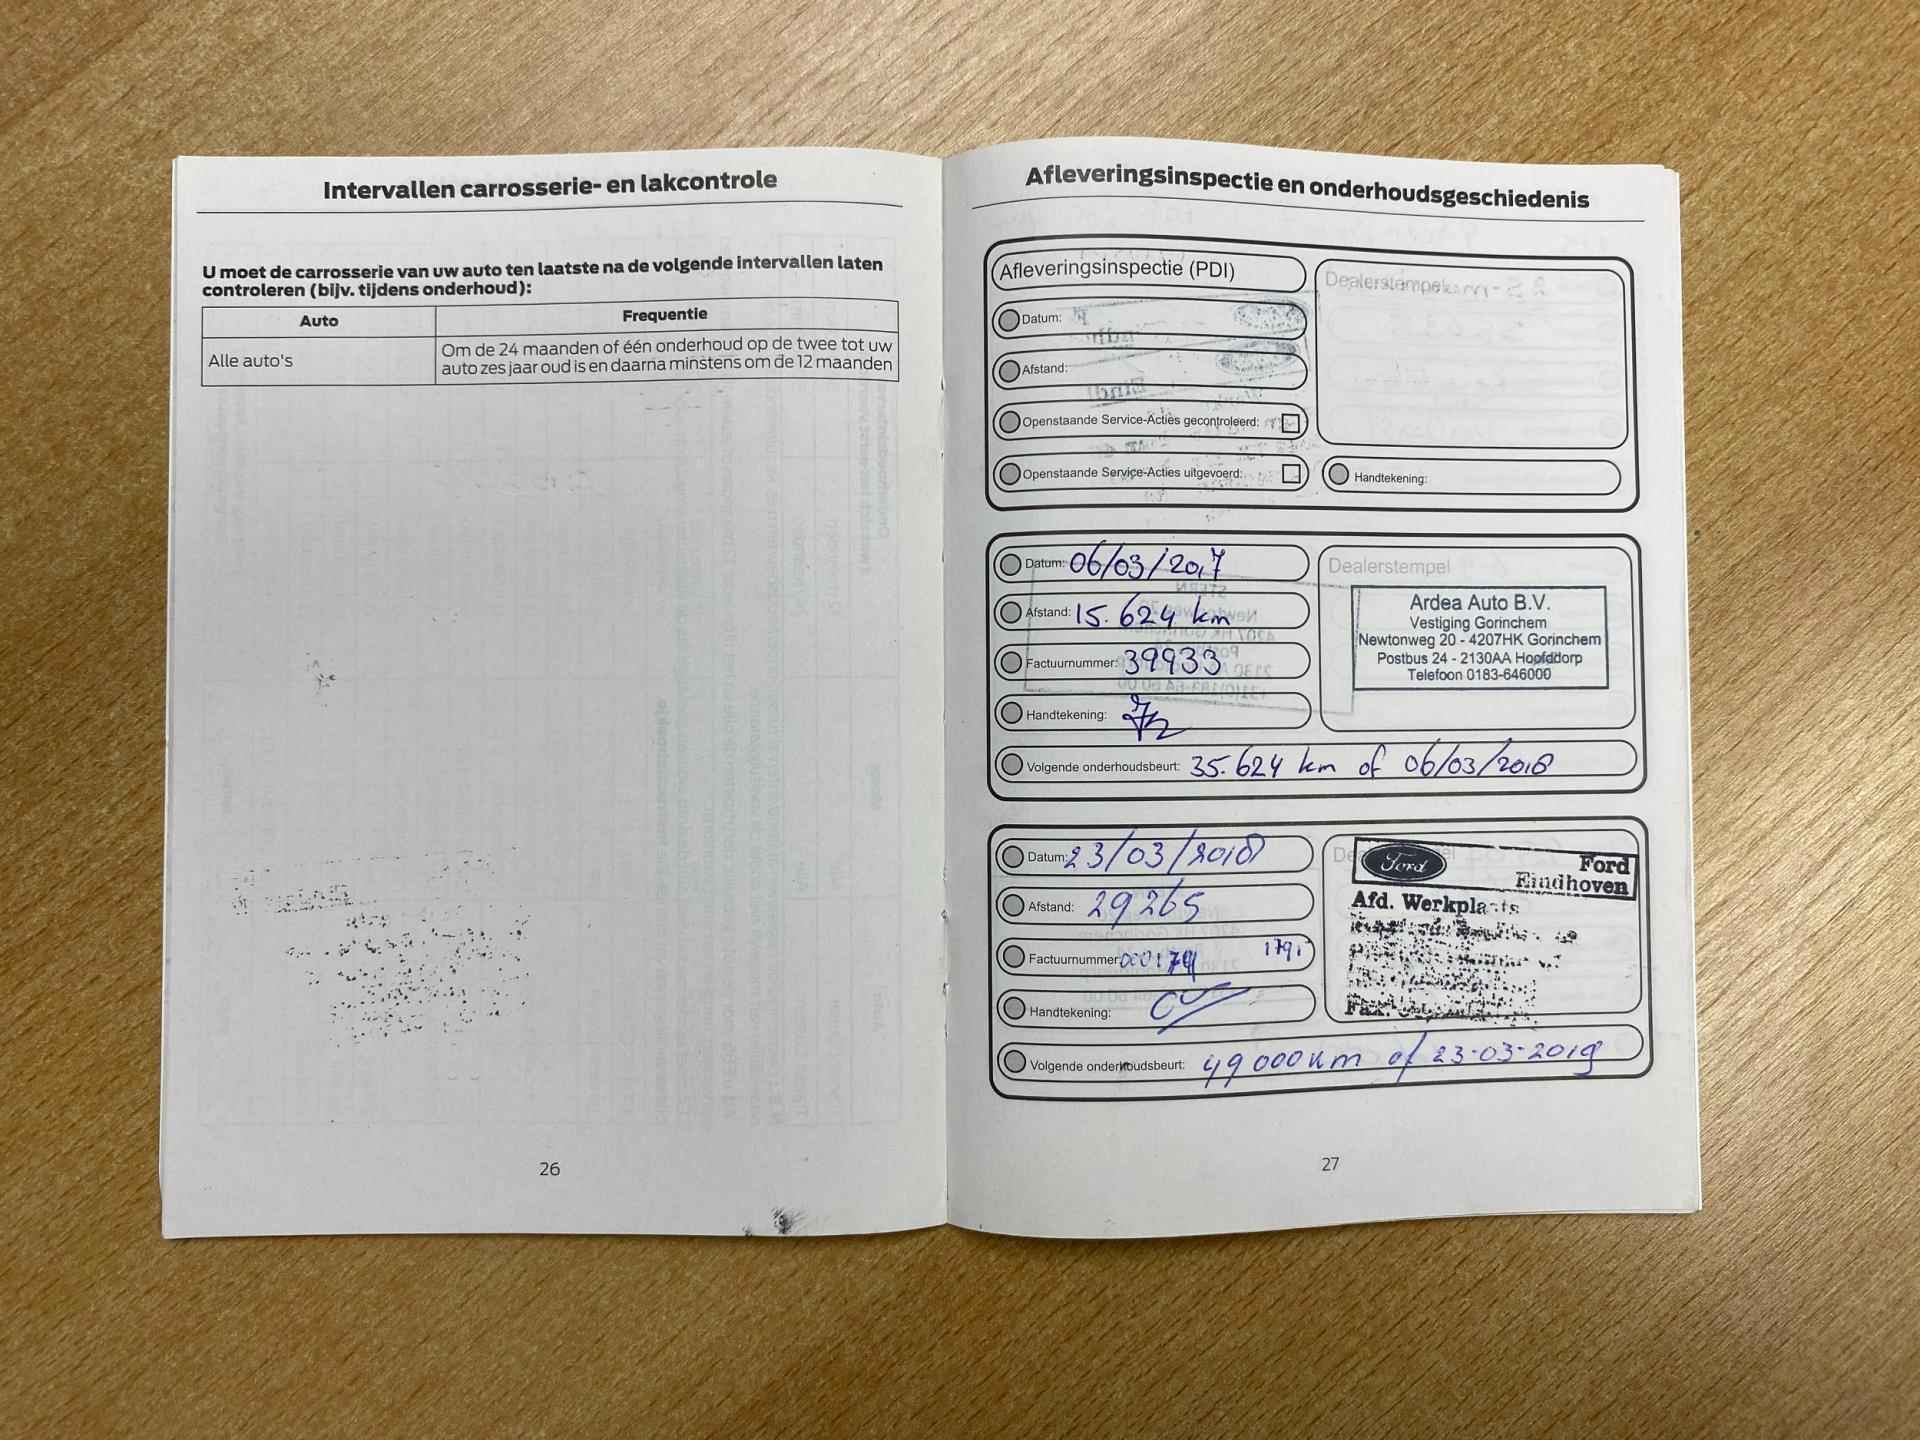 Intervallen carrosserie- en lakcontrole
U moet de carrosserie van uw auto ten laatste na de volgende intervallen laten
controleren (bijv. tijdens onderhoud):
Auto
Frequentie
Alle auto's
Om de 24 maanden of één onderhoud op de twee tot uw
auto zes jaar oud is en daarna minstens om de 12 maanden
26
Afleveringsinspectie en onderhoudsgeschiedenis
Afleveringsinspectie (PDI)
Datum:
Afstand:
Openstaande Service-Acties gecontroleerd:
Openstaande Service-Acties uitgevoerd:
Dealerstempel
Handtekening:
Datum: 06/03/2017
Afstand: 15.624 km
Factuurnummer: 39933
Handtekening:
Volgende onderhoudsbeurt: 35.624 km of 06/03/2018
Dealerstempel
Ardea Auto B.V.
Vestiging Gorinchem
Newtonweg 20 - 4207HK Gorinchem
Postbus 24 - 2130AA Hoofddorp
Telefoon 0183-646000
Datum: 23/03/2018
Afstand: 29265
Factuurnummer:
Handtekening:
Volgende onderhoudsbeurt: 49000km of 23-03-2019
Ford
Ford
Eindhoven
Afd. Werkplaats
Fax.
27